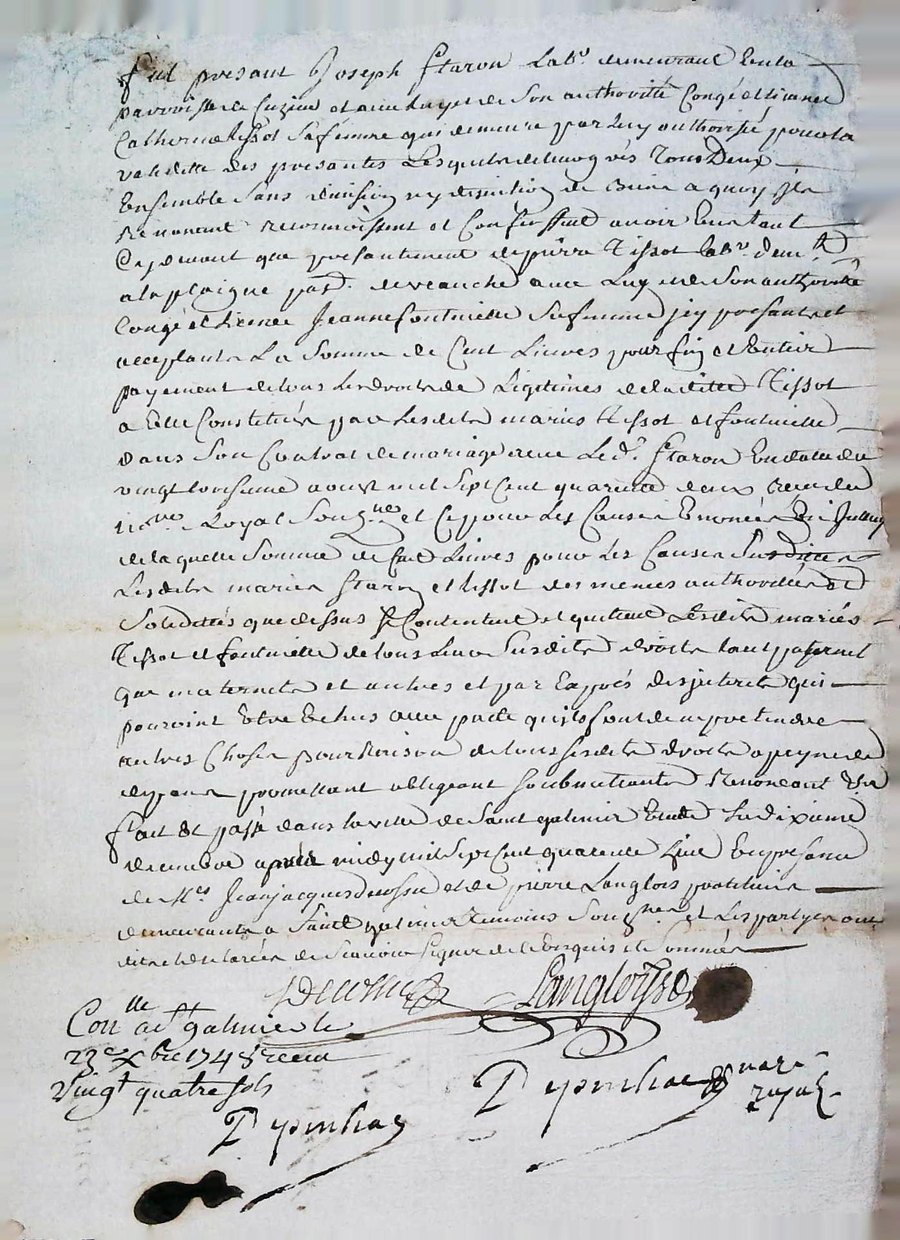 fut presant Joseph Staron Lab.r demeurant En la
parroisse de Cuzieu et avec luy et de Son authorité Congé et licance
Catherine tissot Sa femme qui demeure par luy authorisé pour la
validitté des presantes Lesquels de leur grés Tous Deux
Ensemble Sans division ny discution de Biens a quoy ils
Renoncent reconnoissent et Confessent avoir Eu
Ce jourd'huy que presantement de pierre Tissot lab.r dem.t
a la plaigne par. de veauche avec Luy et de Son authorité
Congé et licence Jeanne fontvielle Sa femme jcy presante et
acceptante La Somme de Cent Livres pour fin et Entier
payement de tous Les droits de Legitimes de la ditte Tissot
a Elle Constitués par Lesdits mariés tissot et fontvielle
dans Son Contrat de mariage avec Led. Staron En datte du
vingt troisieme aoust mil Sept Cent quarente deux receu du
no.re Royal Soug.né et Ce pour Les Causes Enoncées
de la quelle Somme de Cent Livres pour Les Causes Susdittes
Lesdits mariés Staron et tissot des memes authorités et
Solidittés que dessus Se Contentent et quittent Lesdits mariés
Tissot et fontvielle de tous Leurs Susdits droits tant paternels
que maternels et autres et par Exprés des interets qui
pouroint Estre Echus avec pacte qu'ils font de ne pretendre
autres Choses pour Raison de tous Sesdits droits a peyne de
depans promettant obligeant Soubmettants Renonceant
fait et passé dans la ville de Saint galmier Etude Le dixieme
decembre aprés midy mil Sept Cent quarente En presance
de M.es Jean jacques et de pierre Langlois praticiens
demeurants a Saint galmier temoins Soug.nes et Les partyes ont
dit et declarées de Scavoir Signer de Ce Enquis et Sommées
Langlois
Con.lle a St Galmier le
23e Xbre 1748 receu
Vingt quatre sols
nore
royal